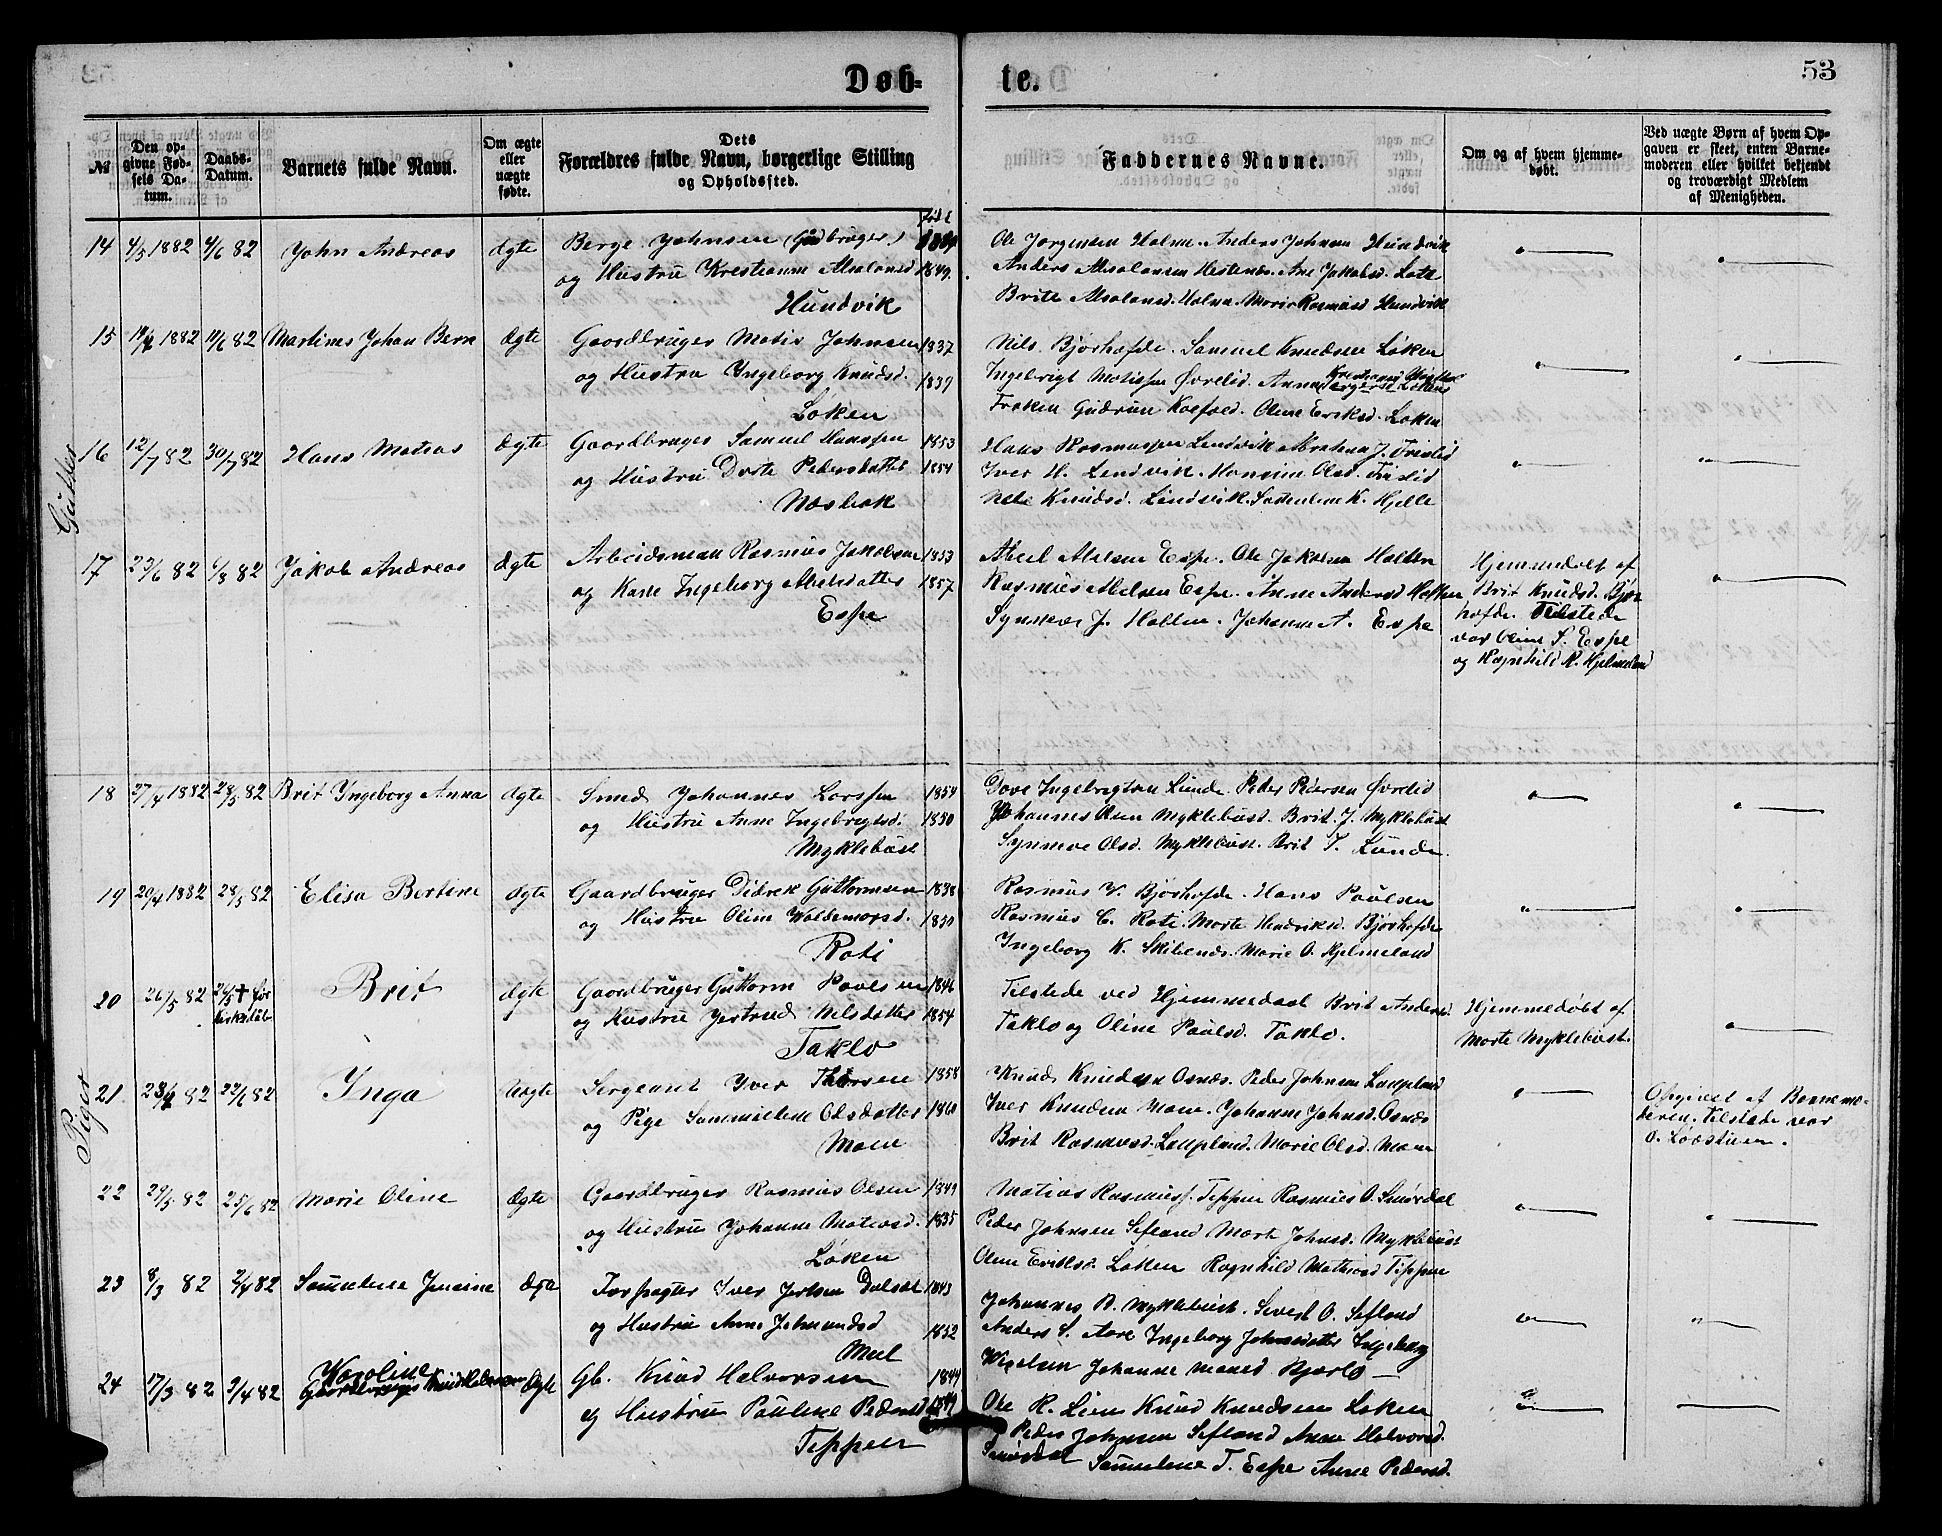 Døb-
te.
53
№
Den op-
givne Fød-
sels Da-
tum.
Daabs-
Datum.
Barnets fulde Navn.
Om ægte
eller
uægte
fødte.
Dets
Forældres fulde Navn, borgerlige Stilling
og Opholdssted.
Faddernes Navne.
Om og af hvem hjemme-
døbt.
Ved uægte Børn af hvem Op-
gaven er skeet, enten Barne-
moderen eller hvilket bekjendt
og troværdigt Medlem
af Menigheden.
Gutter
14 4/5 1882 4/6 82 John Andreas Ægte Berge Johnsen (Gdbruger)
og Hustru Krestianne Absalonsd 1849.
Hundvik
Ole Jorgensen Holme. Anders Johnsen Hundvik
Anders Absalonsen Hestenæs. Ane Jakobsd. Lote
Brite Absalonsd. Holme. Marie Rasmusd Hundvik
15 1882 11/6 82 Martines Johan Bern Ægte Gaardbruger Matis Johnsen 1837
og Hustru Ingeborg Knudsd. 1839
Løken
Nils Bjørhofde. Samuel Knudsen Løken
Ingebrigt Matissen Øvrelid. Anna
Frøken Gudrun Koefoed. Oline Eriksd. Løken
16 12/7 82 30/7 82 Hans Matias Ægte Gaardbruger Samuel Hanssen 1853
og Hustru Dorte Pedersdatter 1854
Nosbak
Hans Rasmussen Lindvik Abraham J. Frislid
Iver H. Lindvik. Hansine Olsd. Frislid
Nele Knudsd. Lindvik. K. Hjelle
17 23/6 82 6/8 82 Jakob Andreas Ægte Arbeidsmand Rasmus Jakobsen 1853
og Kone Ingeborg Abelsdatter 1857
Espe
Abel Abelsen Espe. Ole Jakobsen Holten
Rasmus Abelsen Espe. Anne Andersd Holten
Synneve J. Holten. Johanne A. Espe
Hjemmedøbt af
Brit Knudsd. Bjør
hofde. Tilstede
var Oline S. Espe
og Ragnhild R. Hjelmeland
Piger
18 27/4 1882 28/5 82 Brit Ingeborg Anna Ægte Smed Johannes Larssen 1854
og Hustru Anne Ingebrigtsd. 1850
Myklebust
Dove Ingebrigtsen Lunde. Peder Pedersen Øvrelid
Johannes Olsen Myklebust. Brit J. Myklebust
Synneve Olsd. Myklebust. Brit T. Lunde.
19 20/4 1882 28/5 82 Elisa Bertine Ægte Gaardbruger Didrek Guttormsen 1838
og Hustru Oline Waldemarsd. 1850
Roti
Rasmus V. Bjørhofde. Hans Paulsen
Rasmus C. Roti. Marte Henriksd. Bjørhofde
Ingeborg K. Skibenæs. Marie O. Hjelmeland
20 26/5 82 26/5 † før
kirkedåb
Brit Ægte Gaardbruger Guttorm Povelsen 1846
og Hustru Jertrud Nilsdatter 1854
Taklo
Tilstede ved Hjemmedaab Brit Andersd.
Taklo og Oline Paulsd. Taklo.
Hjemmedøbt af
Marte Myklebust.
21. 23/4 82 22/6 82 Inga Uægte Sergeant Iver Thorsen 1858
og Pige Sammueline Olsdatter 1860
Moen
Knud Knudsen Osnæs. Peder Johnsen Laupland
Iver Knudsen Moen. Johanne Johnsd. Osnæs
Brit Rasmusd. Laupland. Marie Olsd. Moen
Opgivet af Barnemo-
deren. Tilstede var
22 29/5 82 25/6 82 Marie Oline Ægte Gaardbruger Rasmus Olsen 1849
og Hustru Johanne Mateosd. 1855
Løken
Matias Rasmuss. Teppen Rasmus O. Smørdal
Peder Johnsen Sefland Marte Johnsd. Myklebust
Oline Eriksd. Løken Ragnhild Mathiasd Tippen
23 8/3 82 2/4 82 Samuline Jensine Ægte Forpagter Iver Jertsen Dalsæt 1843
og Hustru Anne Jetmundsd 1852
Mul
Johannes R. Myklebust. Sivert O. Sefland
Anders S. Aare Ingeborg Johnsdatter Ingeborg
Johanne Hjarlo
24 17/3 82 9/4 82 Karoline Ægte Gb. Knud Halvorsen 1844
og Hustru Pauline Pedersd 1849
Teppen
Ole R. Lien Knud Knudsen Løken
Peder Johnsen Sefland Anne Halvorsd.
Smørdal Samueline T. Espe Anne Pedersd.